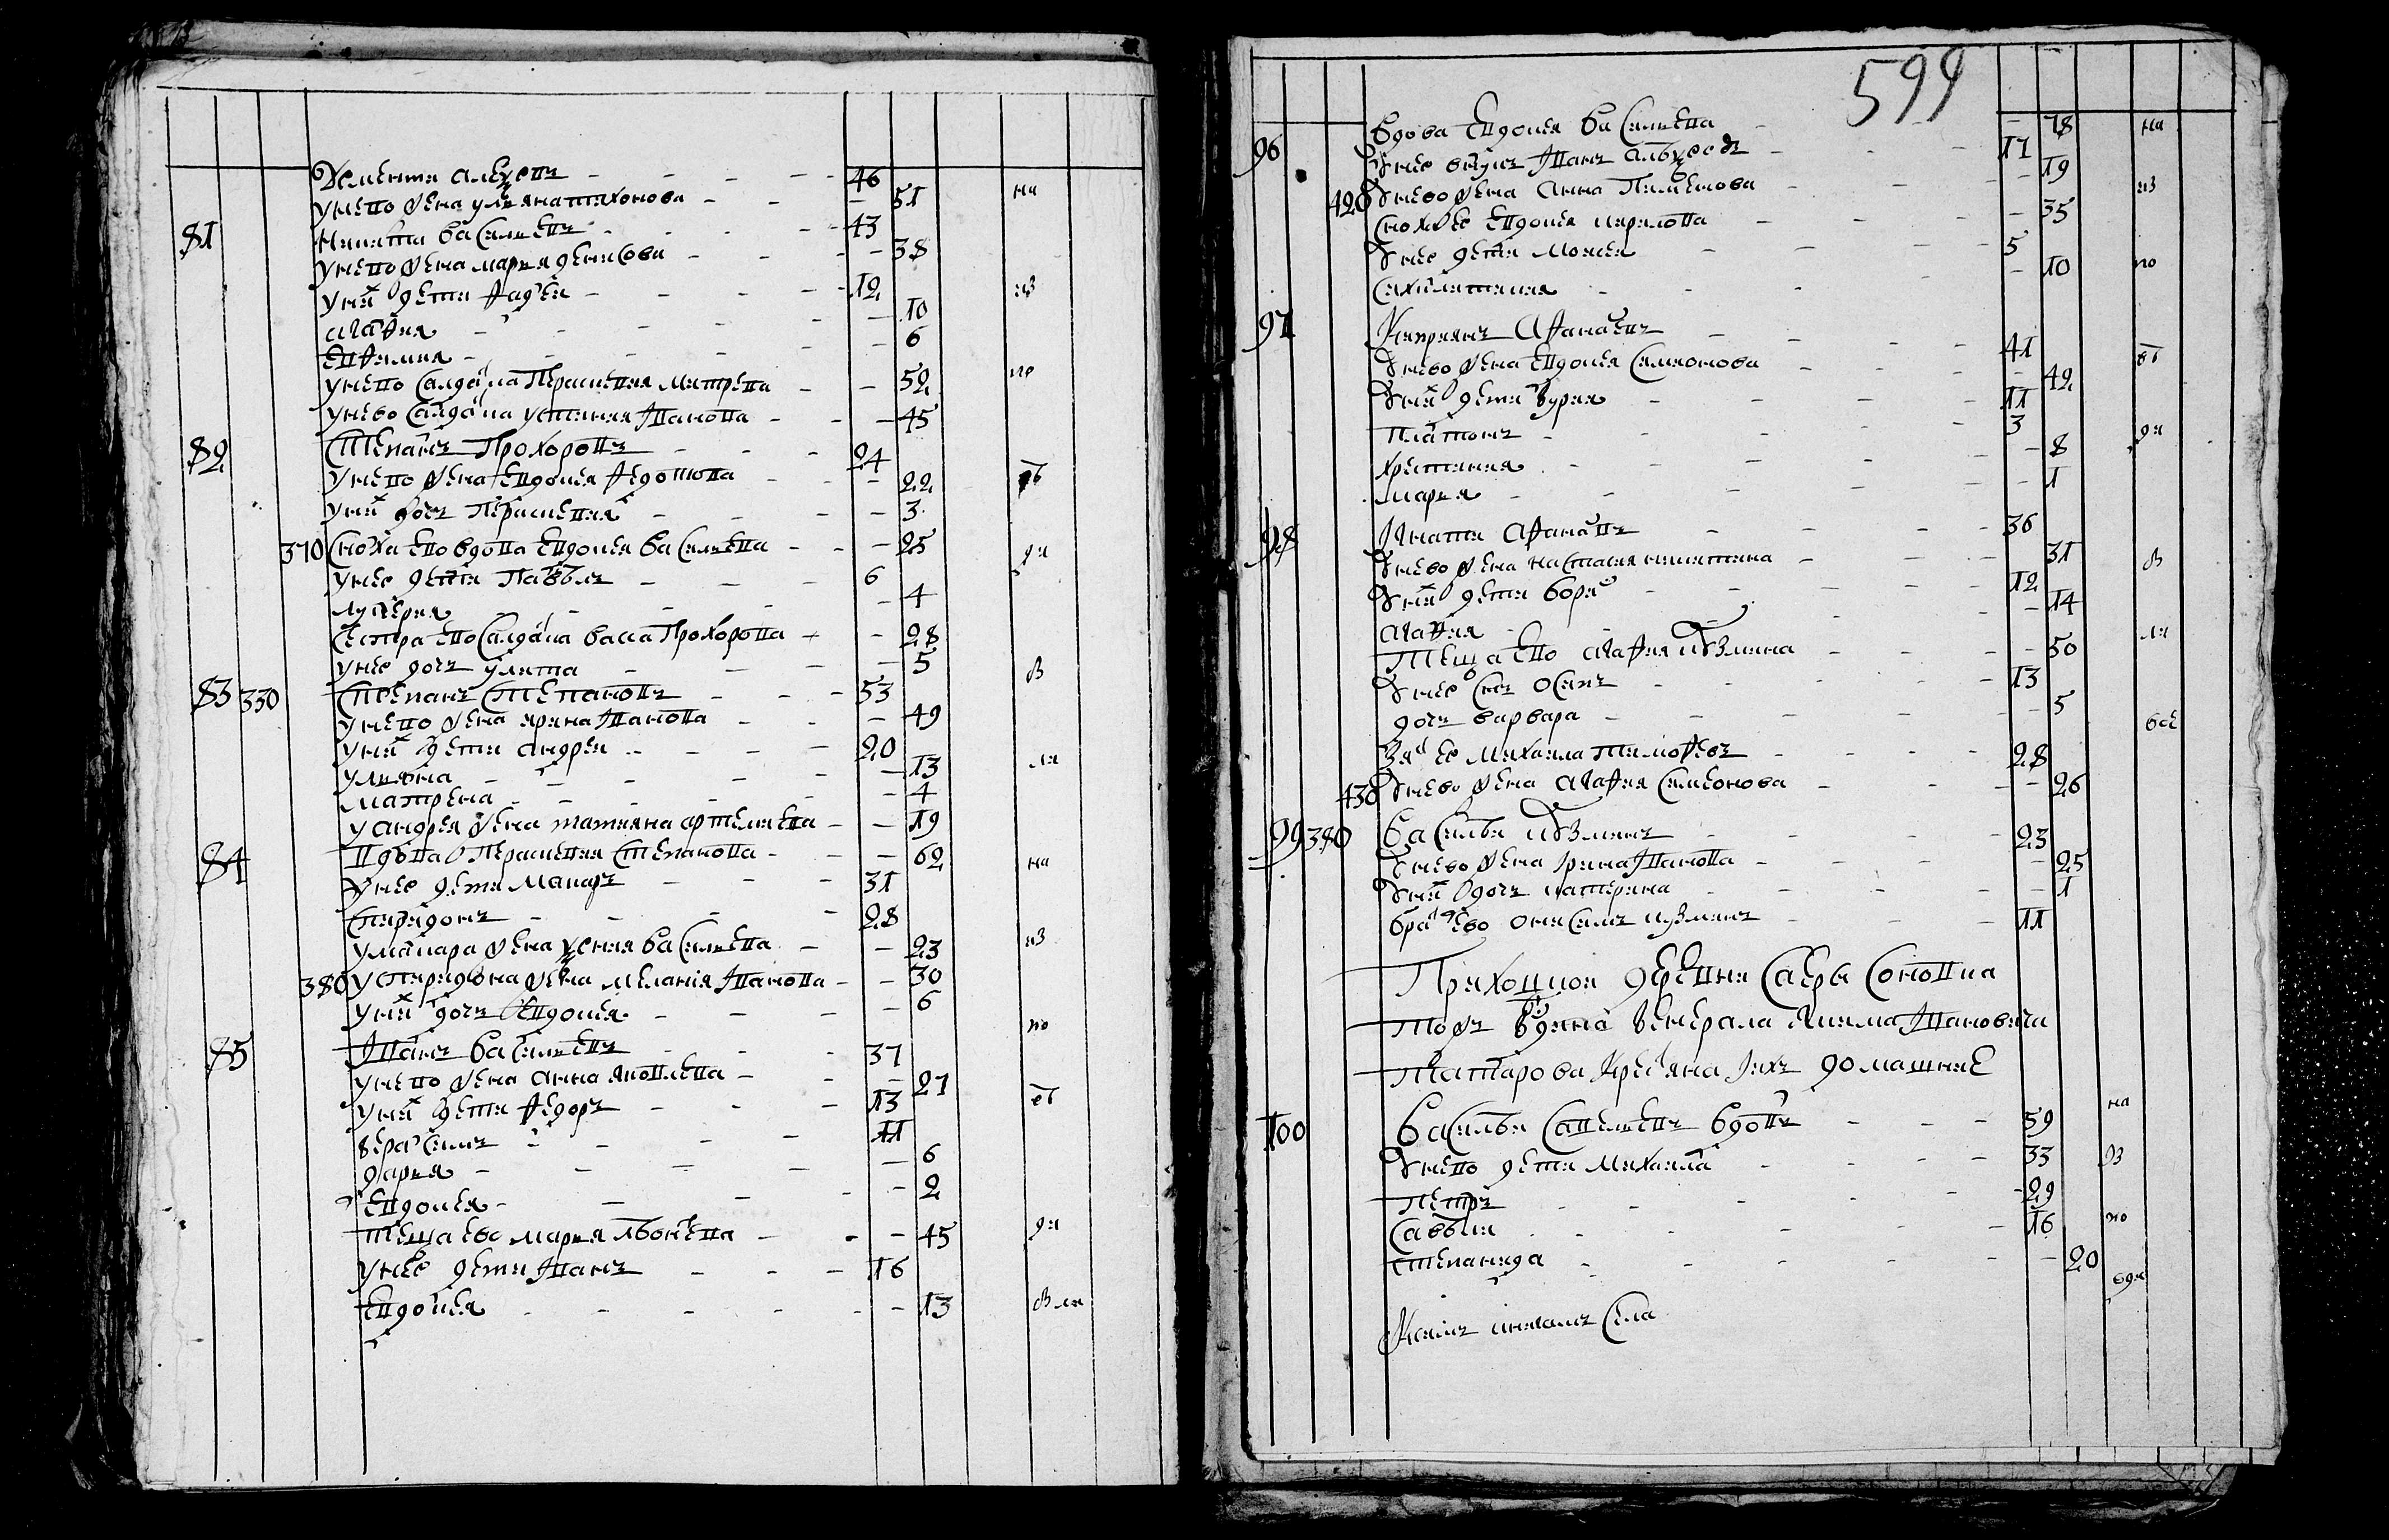 Дементи Алеѯевъ - - - - 46
у него жена Ульяна Тихонова - - - 51 на
81 Никита Васильевъ - - - 43
у него жена Марья Денисова - - - 38
у них дети Фадей - - - 12 из
Агафия - - - - 10
Евфимия - - - - 6
у него салдатка Парасковия Матвева - - 52 пе
у него салдатка Устиния Иванова - - 45
82 Степанъ Прохоровъ - - - 24
у него жена Евдокея Федотова - - - 22 ев
у них дочь Парасковия - - - 3
370 сноха ево вдова Евдокея Васильева - - - 25 ди
у нее дети Павелъ - - - 6
Лукерия - - - 4
сестра ево салдатка Васа Прохорова - - 28
у нее дочь Улита - - - 5 в
83 330 Степанъ Степановъ - - - 53
у него жена Ирина Иванова - - - 49
у них дети Андреи - - - 20
Ульяна - - - - 13 ли
Матрена - - - - 4
у Андрея жена Татияна Артемьева - - 19
84 вдова Парасковия Степанова - - - 62 на
у нее дети Макаръ - - - 31
Спиридонъ - - - - 28
у Макара жена Ѯения Васильева - - 23 из
380 у Спиридона жена Мелания Иванова - - 30
у них дочь Евдокея - - - 6
85 Иванъ Васильевъ - - - 37 по
у него жена Анна Яковлева - - - 27
у них дети Федоръ - - - 13 ев
Герасимъ - - - - 11
Дарья - - - - 6
Евдокея - - - - 2
теща ево Марья Львонтева - - - 45 ди
у нее дети Иванъ - - - 16
Евдокея - - - - 13 в ли
599
вдова Евдокея Васильева - - 78 на
96 у нее внукъ Иванъ Алѣѯеевъ - - - 17
420 у нево жена Анна Пименова - - - 19 из
сноха ее Евдокея Кирилова - - - 35
у нее дети Моисей - - - 5
- - - 10 по
97 Киприянъ Афанасевъ - - - 41
у нево жена Евдокея Симионова - - - 42 ев
у них дети Гурия - - - 11
Платонъ - - - - 3
Христиния - - - - 8 ди
Марья - - - - 1
98 Игнати Афанасевъ - - - 36
у нево жена Настасия Никитина - - - 31 в
у них дети Борис - - - 12
Агафия - - - - 14
теща ево Агафия Кузмина - - - 50 ли
у нее сынъ Осипъ - - - 13
дочь Варвара - - - - 5
зять ее Михаила Тимофеевъ - - - 28 все
430 у нево жена Агафия Симеонова - - - 26
99 340 Василѣи Кузминъ - - - 23
у нево жена Ирина Иванова - - - 25
у них дочь Катерина - - - 1
братъ ево Онисимъ Кузминъ - - - 11
Приходцкой деревни
тож вдчина генерала Акима Ивановича
Татарова крестьяна и их домашние
100 Василѣи Савельевъ вдовъ - - - 59 на
у него дети Михаила - - - 33 из
Петръ - - - - 29
Савѣли - - - - 16 по
Степанида - - - - 20
села